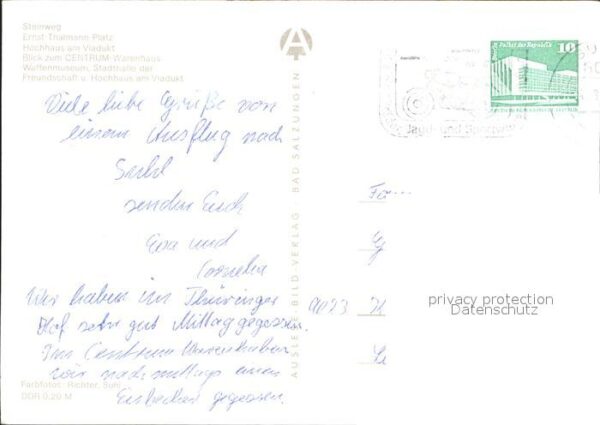 Steinweg
Ernst-Thälmann-Platz
Hochhaus am Viadukt
Blick zum CENTRUM-Warenhaus
Waffenmuseum, Stadthalle der
Freundschaft u. Hochhaus am Viadukt
Viele liebe Grüße von
einem Ausflug nach
Suhl
senden Euch
Eva und
Cornelia
Wir haben im Thüringer
Hof sehr gut Mittag gegessen.
Im Centrum Warenhaus haben
wir nachmittags einen
Eisbecher gegessen.
Farbfotos: Richter, Suhl
DDR 0,20 M
AUSLESE-BILD-VERLAG · BAD SALZUNGEN
Palast der Republik
10
Jagd- und Sportwaffen
Fa
9023 K
privacy protection
Datenschutz